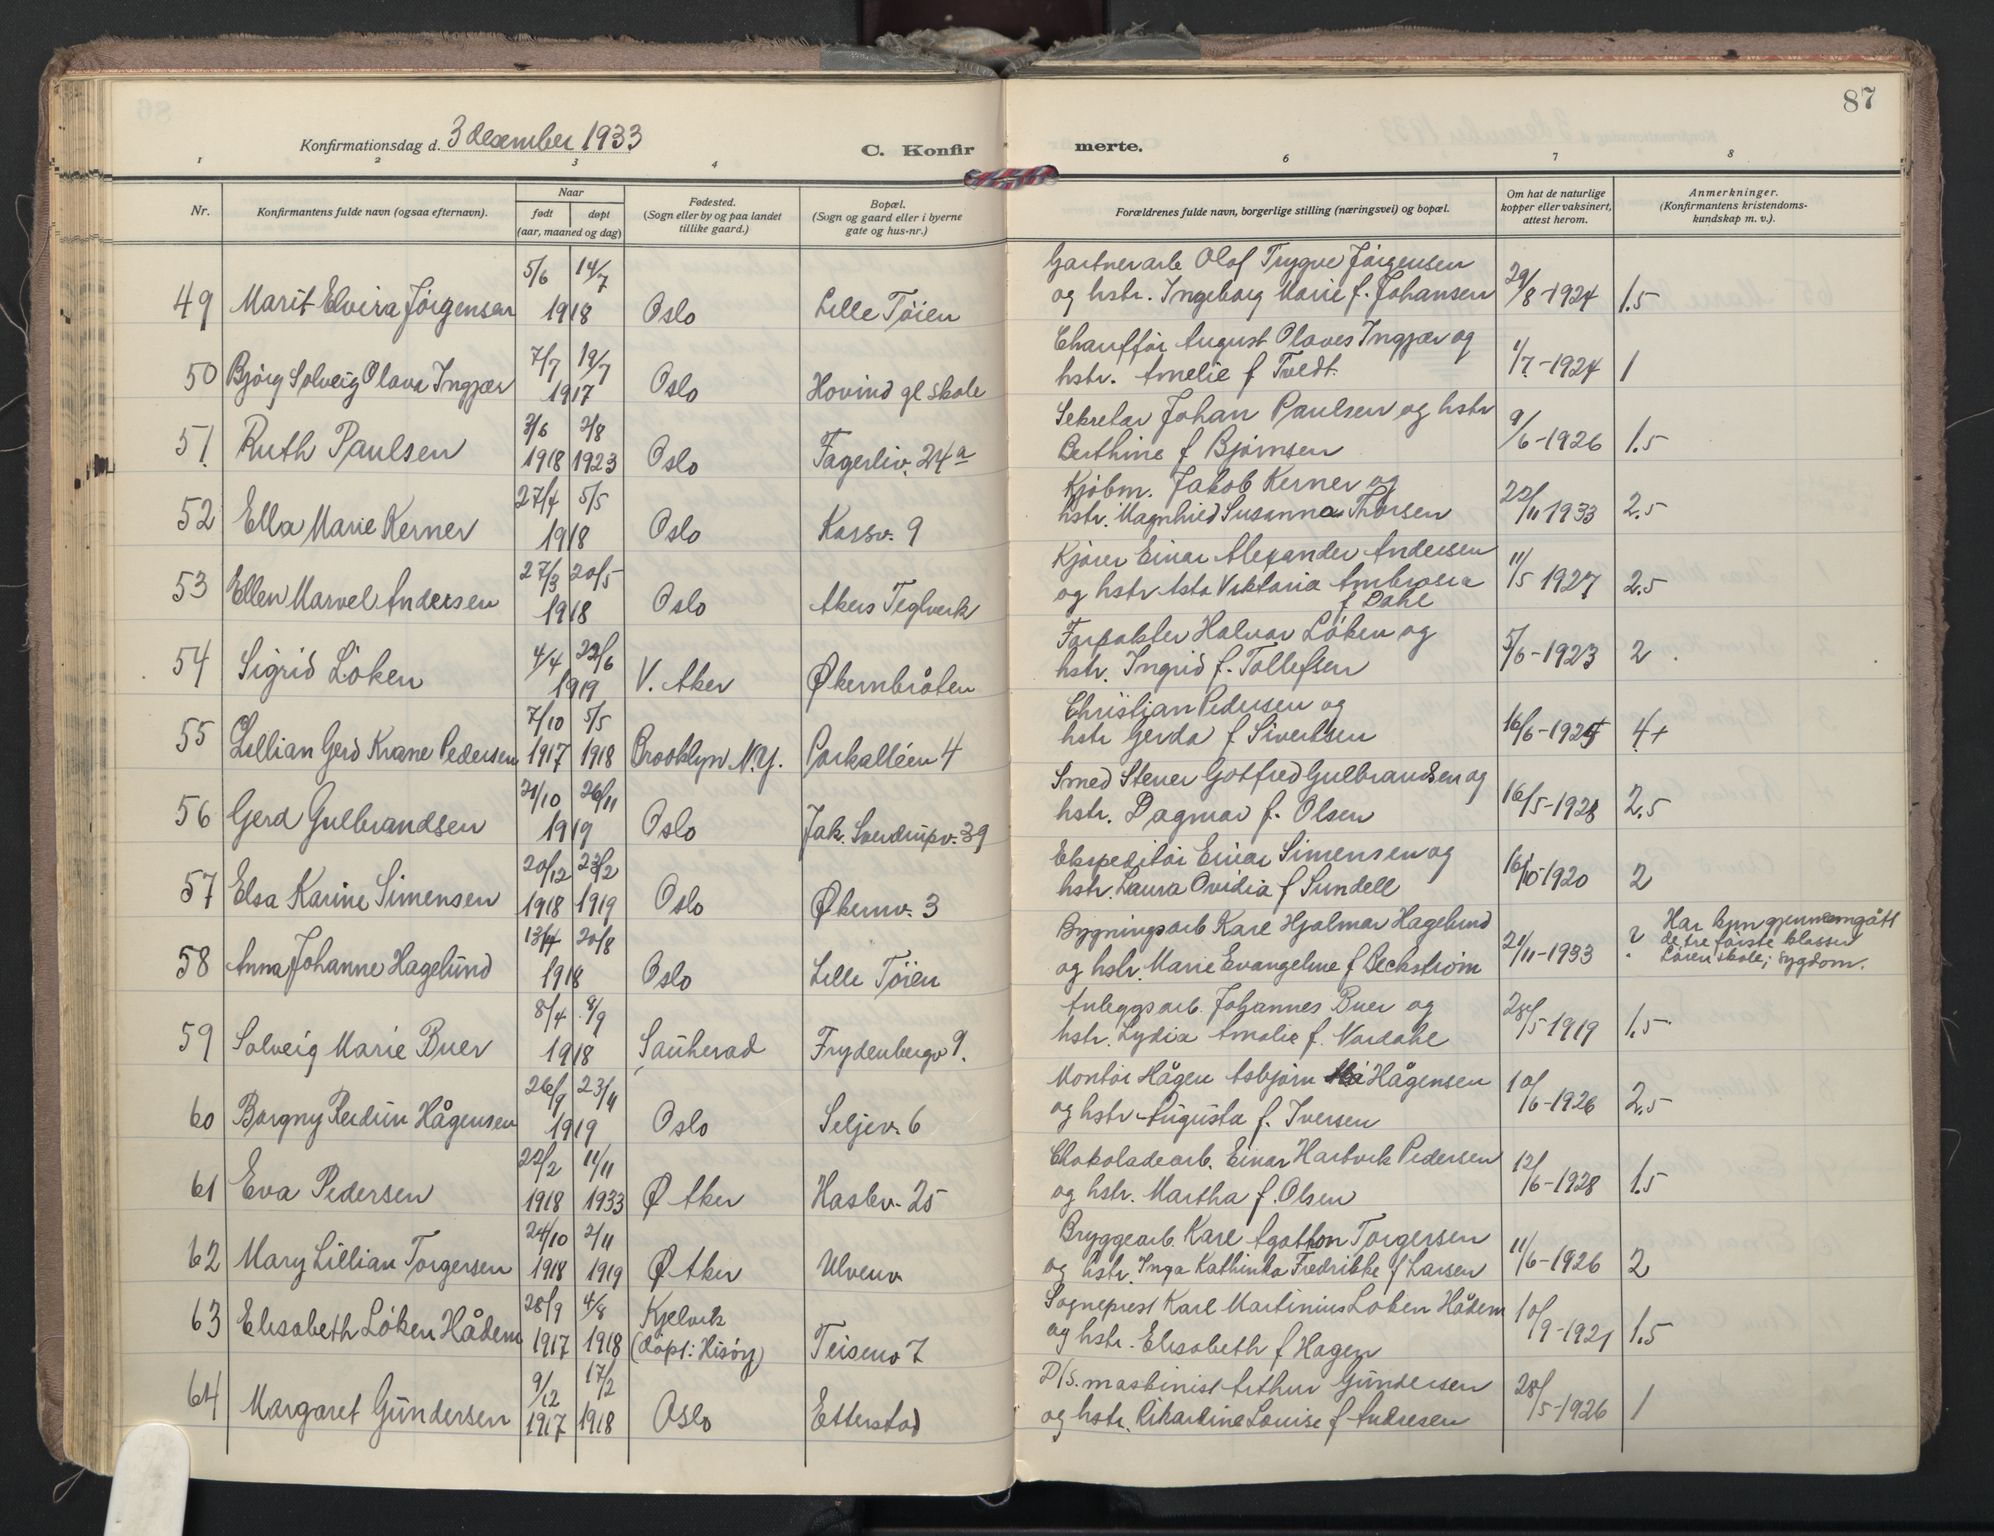 87
Konfirmationsdag d. 3 desember 1933
C. Konfirmerte.
1 2 3 4 6 7 8
Nr.
Konfirmantens fulde navn (ogsaa efternavn).
Naar
født døpt
(aar, maaned og dag)
Fødested.
(Sogn eller by og paa landet
tillike gaard.)
Bopæl.
(Sogn og gaard eller i byerne
gate og hus-nr.)
Forældrenes fulde navn, borgerlige stilling (næringsvei) og bopæl.
Om hat de naturlige
kopper eller vaksinert,
attest herom.
Anmerkninger.
(Konfirmantens kristendoms-
kundskap m. v.).
5/6 14/7 Gartnerarb Olof Trygve Jörgensen
49 Marit Elvira Jörgensen 1918 Oslo Lille Töien og hstr. Ingeborg Marie f. Johansen 29/8-1924 1.5
7/7 19/7 Chaufför August Olaves Ingjær og
50 Bjørg Solveig Olava Ingjær 1917 Oslo Hovind gl skole hstr. Amelie f Tvedt. 1/7-1924 1
3/6 2/8 Sekretær Johan Paulsen og hstr
51 Ruth Paulsen 1918 1923 Oslo Fagerliv. 24a Berthine f Bjørnsen 9/6-1926 1.5
27/4 5/5 Kjøbm. Jakob Kerner og
52 Ella Marie Kerner 1918 Oslo Karsv. 9 hstr. Magnhild Susanna Thorsen 22/11 1933 2.5
27/3 20/5 Kjører Einar Alexander Andersen
53 Ellen Marvel Andersen 1918 Oslo Akers Teglverk og hstr Asta Viktoria Ambrosia 11/5 1927 2.5
f Dahl
4/4 22/6 Forpakter Halvar Löken og
54 Sigrid Löken 1919 V. Aker Økernbråten hstr. Ingrid f. Tollefsen 5/6-1923 2
7/10 5/5 Christian Pedersen og
55 Lillian Gerd Krane Pedersen 1917 1918 Brooklyn N.Y. Parkalléen 4 hstr Gerda f Sivertsen 16/6-1925 4+
21/10 26/11 Smed Stener Gotfred Gulbrandsen og
56 Gerd Gulbrandsen 1919 Oslo Jak. Sverdrupv. 39 hstr. Dagmar f. Olsen 16/5-1928 2.5
20/12 23/2 Ekspeditör Einar Simensen og
57 Elsa Karine Simensen 1918 1919 Oslo Økernv. 3 hstr. Laura Ovidia f Sundell 16/10-1920 2
13/4 20/8 Bygningsarb Karl Hjalmar Hagelund
58 Anna Johanne Hagelund 1918 Oslo Lille Töien og hstr. Marie Evangeline f Beckström 21/11-1933 ? Har kun gjennemgått
de tre første klasser
Løren skole; sygdom.
8/4 8/9 Anleggsarb. Johannes Buer og
59 Solveig Marie Buer 1918 Sauherad Frydenbergv 9. hstr. Lydia Amalie f. Nordahl 28/5-1919 1.5
26/9 23/11 Montör Hågen Asbjørn Hågensen
60 Borgny Reidun Hågensen 1919 Oslo Seljev. 6 og hstr Augusta f. Iversen 10/6-1926 2.5
22/2 11/11 Chokoladearb. Einar Hartvik Pedersen
61 Eva Pedersen 1918 1933 Ø Aker Haslev. 25 og hstr. Martha f. Olsen 12/6-1928 1.5
24/10 2/11 Bryggearb. Karl Agathon Torgersen
62 Mary Lillian Torgersen 1918 1919 Ø Aker Ulvenv og hstr. Inga Kathinka Fredrikke f Larsen 11/6-1926 2
28/9 4/8 Kjelvik Sogneprest Karl Martinius Löken Hådem
63 Elisabeth Löken Hådem 1917 1918 (döpt: Hisöy) Teisenv 7 og hstr. Elisabeth f Hagen 10/9-1921 1.5
9/12 17/2 D/S. maskinist Arthur Gundersen
64 Margaret Gundersen 1917 1918 Oslo Etterstad og hstr. Rikardine Louise f Andresen 28/5-1926 1